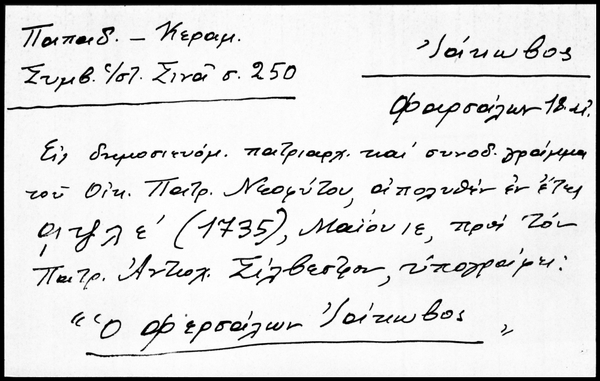 Παπαδ. – Κεραμ.
Συμβ. εἰς ἱστ. Σινᾶ σ. 250
Ἰάκωβος
Φαρσάλων 18 αἰ.
Εἰς δημοσιευόμ. πατριαρχ. καί συνοδ. γράμμα
τοῦ Οἰκ. Πατρ. Νεοφύτου, ἀπολυθέν ἐν ἔτει
͵αψλε΄ (1735), Μαΐου ιε, πρός τόν
Πατρ. Ἀντιοχ. Σίλβεστρον, ὑπογράφει:
"Ὁ Φερσάλων Ἰάκωβος"